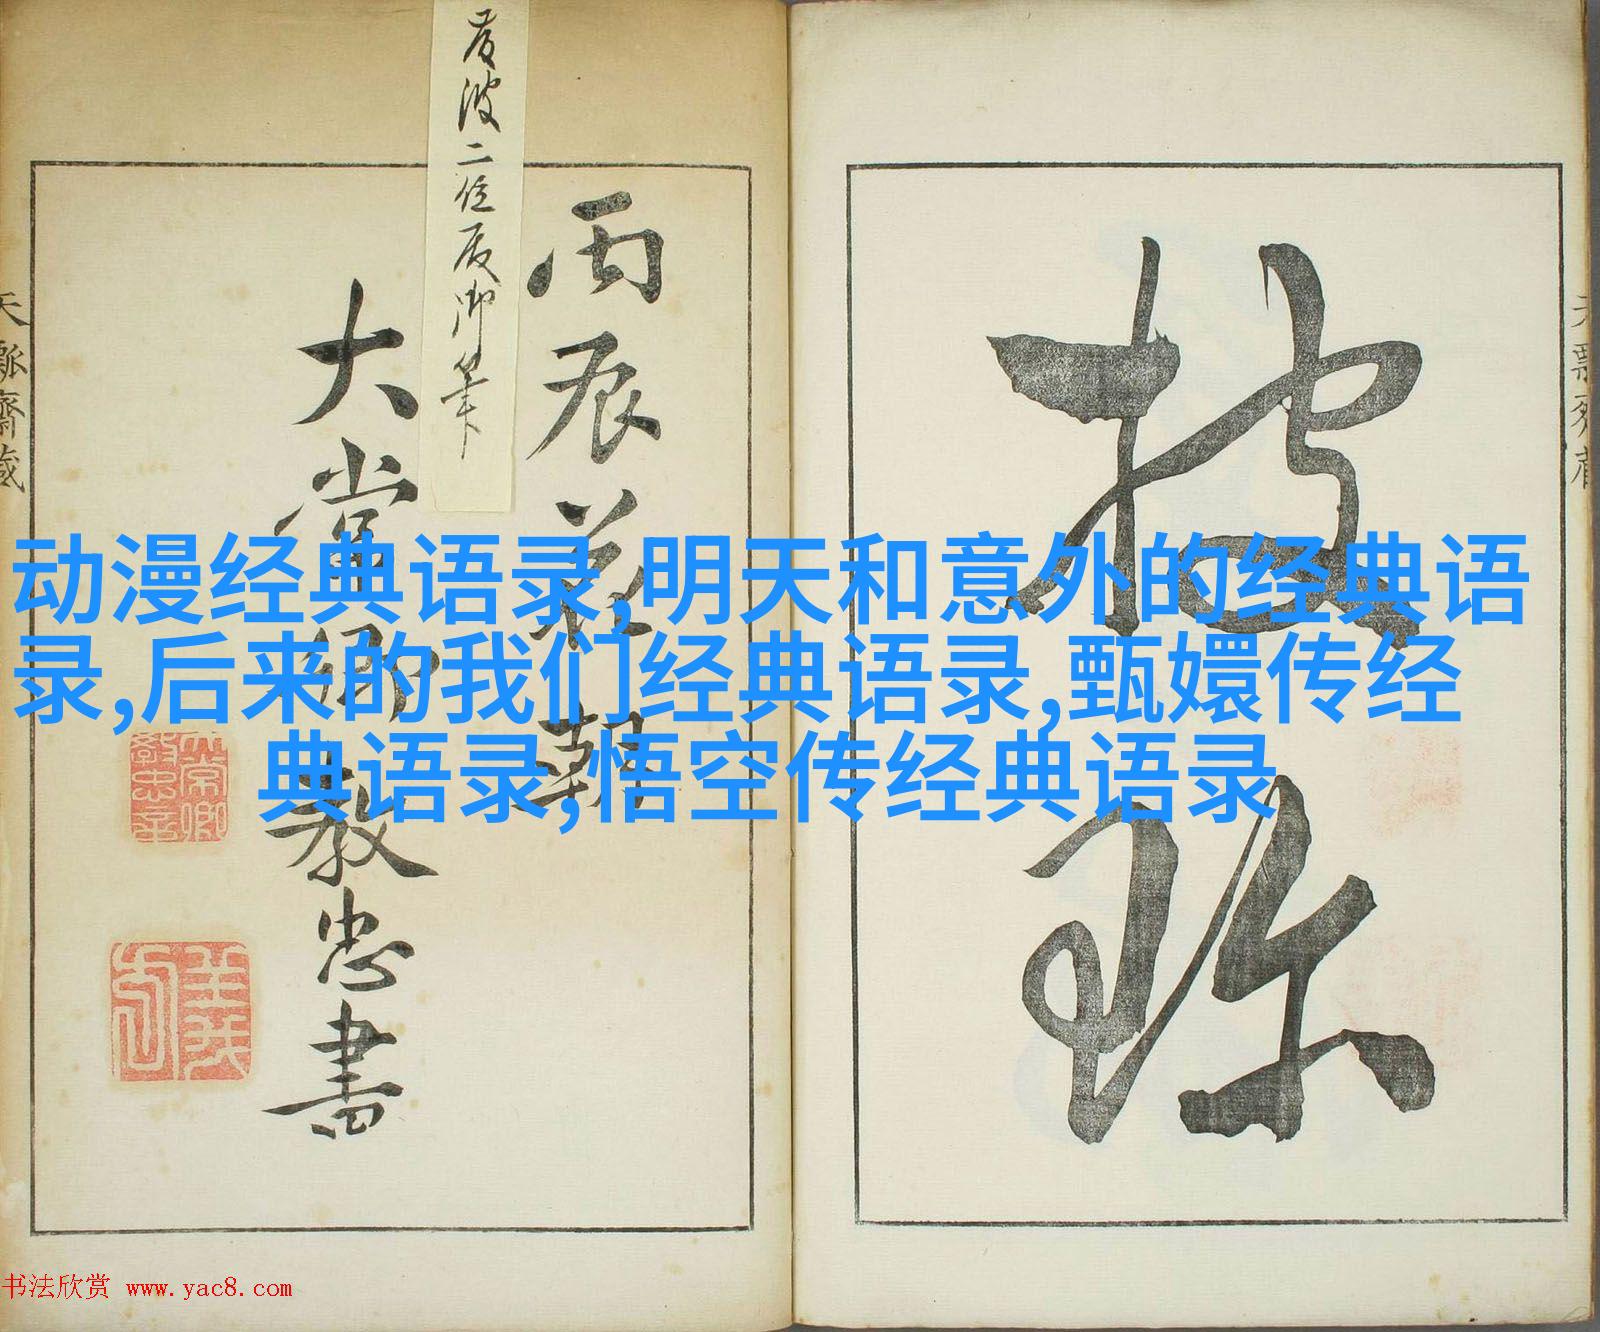 披珠
丙辰花朝
大常卿教忠書
動波二位展御筆
动漫经典语录,明天和意外的经典语
录,后来的我们经典语录,甄嬛传经
典语录,悟空传经典语录
天瓢齋藏
书法欣赏 www.yac8.com